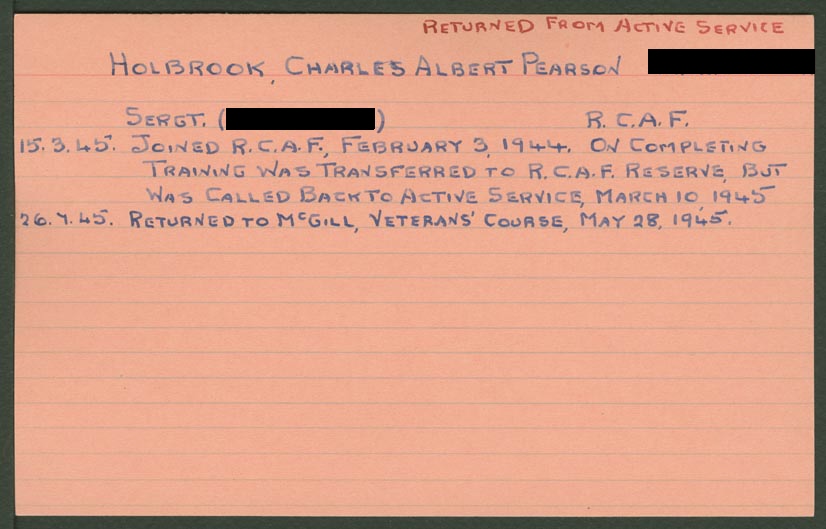 RETURNED FROM ACTIVE SERVICE
HOLBROOK, CHARLES ALBERT PEARSON
SERGT. ( ) R.C.A.F.
15.3.45. JOINED R.C.A.F., FEBRUARY 3, 1944. ON COMPLETING
TRAINING WAS TRANSFERRED TO R.C.A.F. RESERVE, BUT
WAS CALLED BACK TO ACTIVE SERVICE, MARCH 10, 1945
26.7.45. RETURNED TO McGILL, VETERANS' COURSE, MAY 28, 1945.